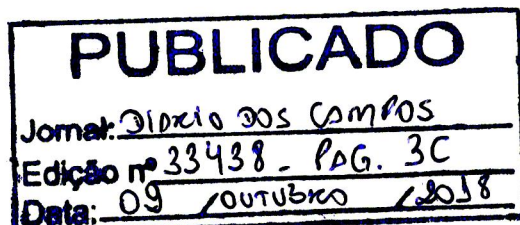 PUBLICADO
Jornal: DIÁRIO DOS CAMPOS
Edição nº 33438 - PAG. 3C
Data: 09 / OUTUBRO / 2018